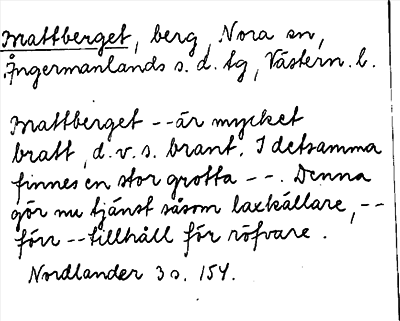 Brattberget, berg, Nora sn,
Ångermanlands s. d. tg, Västern. l.
Brattberget -- är mycket
bratt, d.v.s. brant. I detsamma
finnes en stor grotta --. Denna
gör nu tjänst såsom laxkällare, --
förr -- tillhåll för röfvare.
Nordlander 3 s. 154.